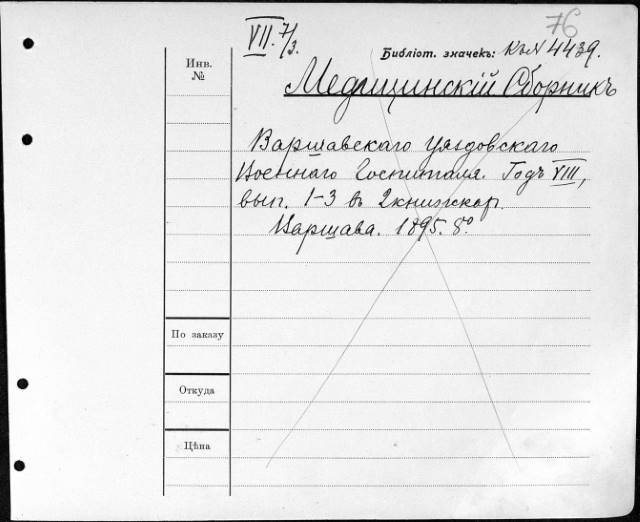 76
VII. 7/3.
Библіот. значекъ: Къ № 4439.
Инв. №
Медицинскій Сборникъ
Варшавскаго Уяздовскаго
Военнаго Госпиталя. Годъ VIII,
вып. 1-3 въ 2 книжках.
Варшава. 1895. 8°.
По заказу
Откуда
Цѣна